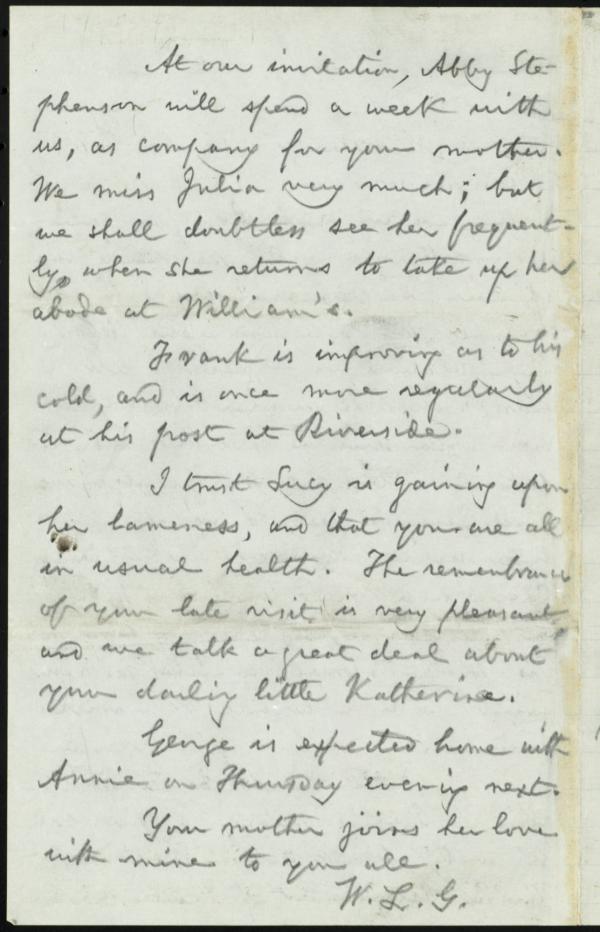 At our invitation, Abby Ste-
phenson will spend a week with
us, as company for your mother.
We miss Julia very much; but
we shall doubtless see her frequent-
ly, when she returns to take up her
abode at William's.
Frank is improving as to his
cold, and is once more regularly
at his post at Riverside.
I trust Lucy is gaining upon
her lameness, and that you are all
in usual health. The remembrance
of your late visit is very pleasant,
and we talk a great deal about
your darling little Katherine.
George is expected home with
Annie on Thursday evening next.
Your mother joins her love
with mine to you all.
W. L. G.